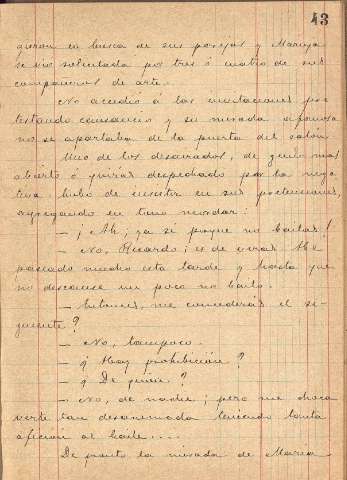 43
quran en busca de sus parejas y Maruja
se vió solicitada por tres ó cuatro de sus
compañeros de arte.
No accedió á las invitaciones pre
testando cansancio y su mirada afanosa
no se apartaba de la puerta del salón.
Uno de los desairados, de genio mas
abierto ó quizas despechado por la nega
tiva hubo de insistir en sus pretensiones,
agregando en tono mordaz:
— ¡Ah; ya se porque no bailas!
— No, Ricardo; es de veras. He
paseado mucho esta tarde y hasta que
no descanse un poco no bailo.
— Entonces, me concederás el si-
guiente?
— No, tampoco.
— ¿Hay prohibición?
— ¿De quien?
— No, de nadie; pero me choca
verte tan desanimada teniendo tanta
aficion al baile....
De pronto la mirada de María